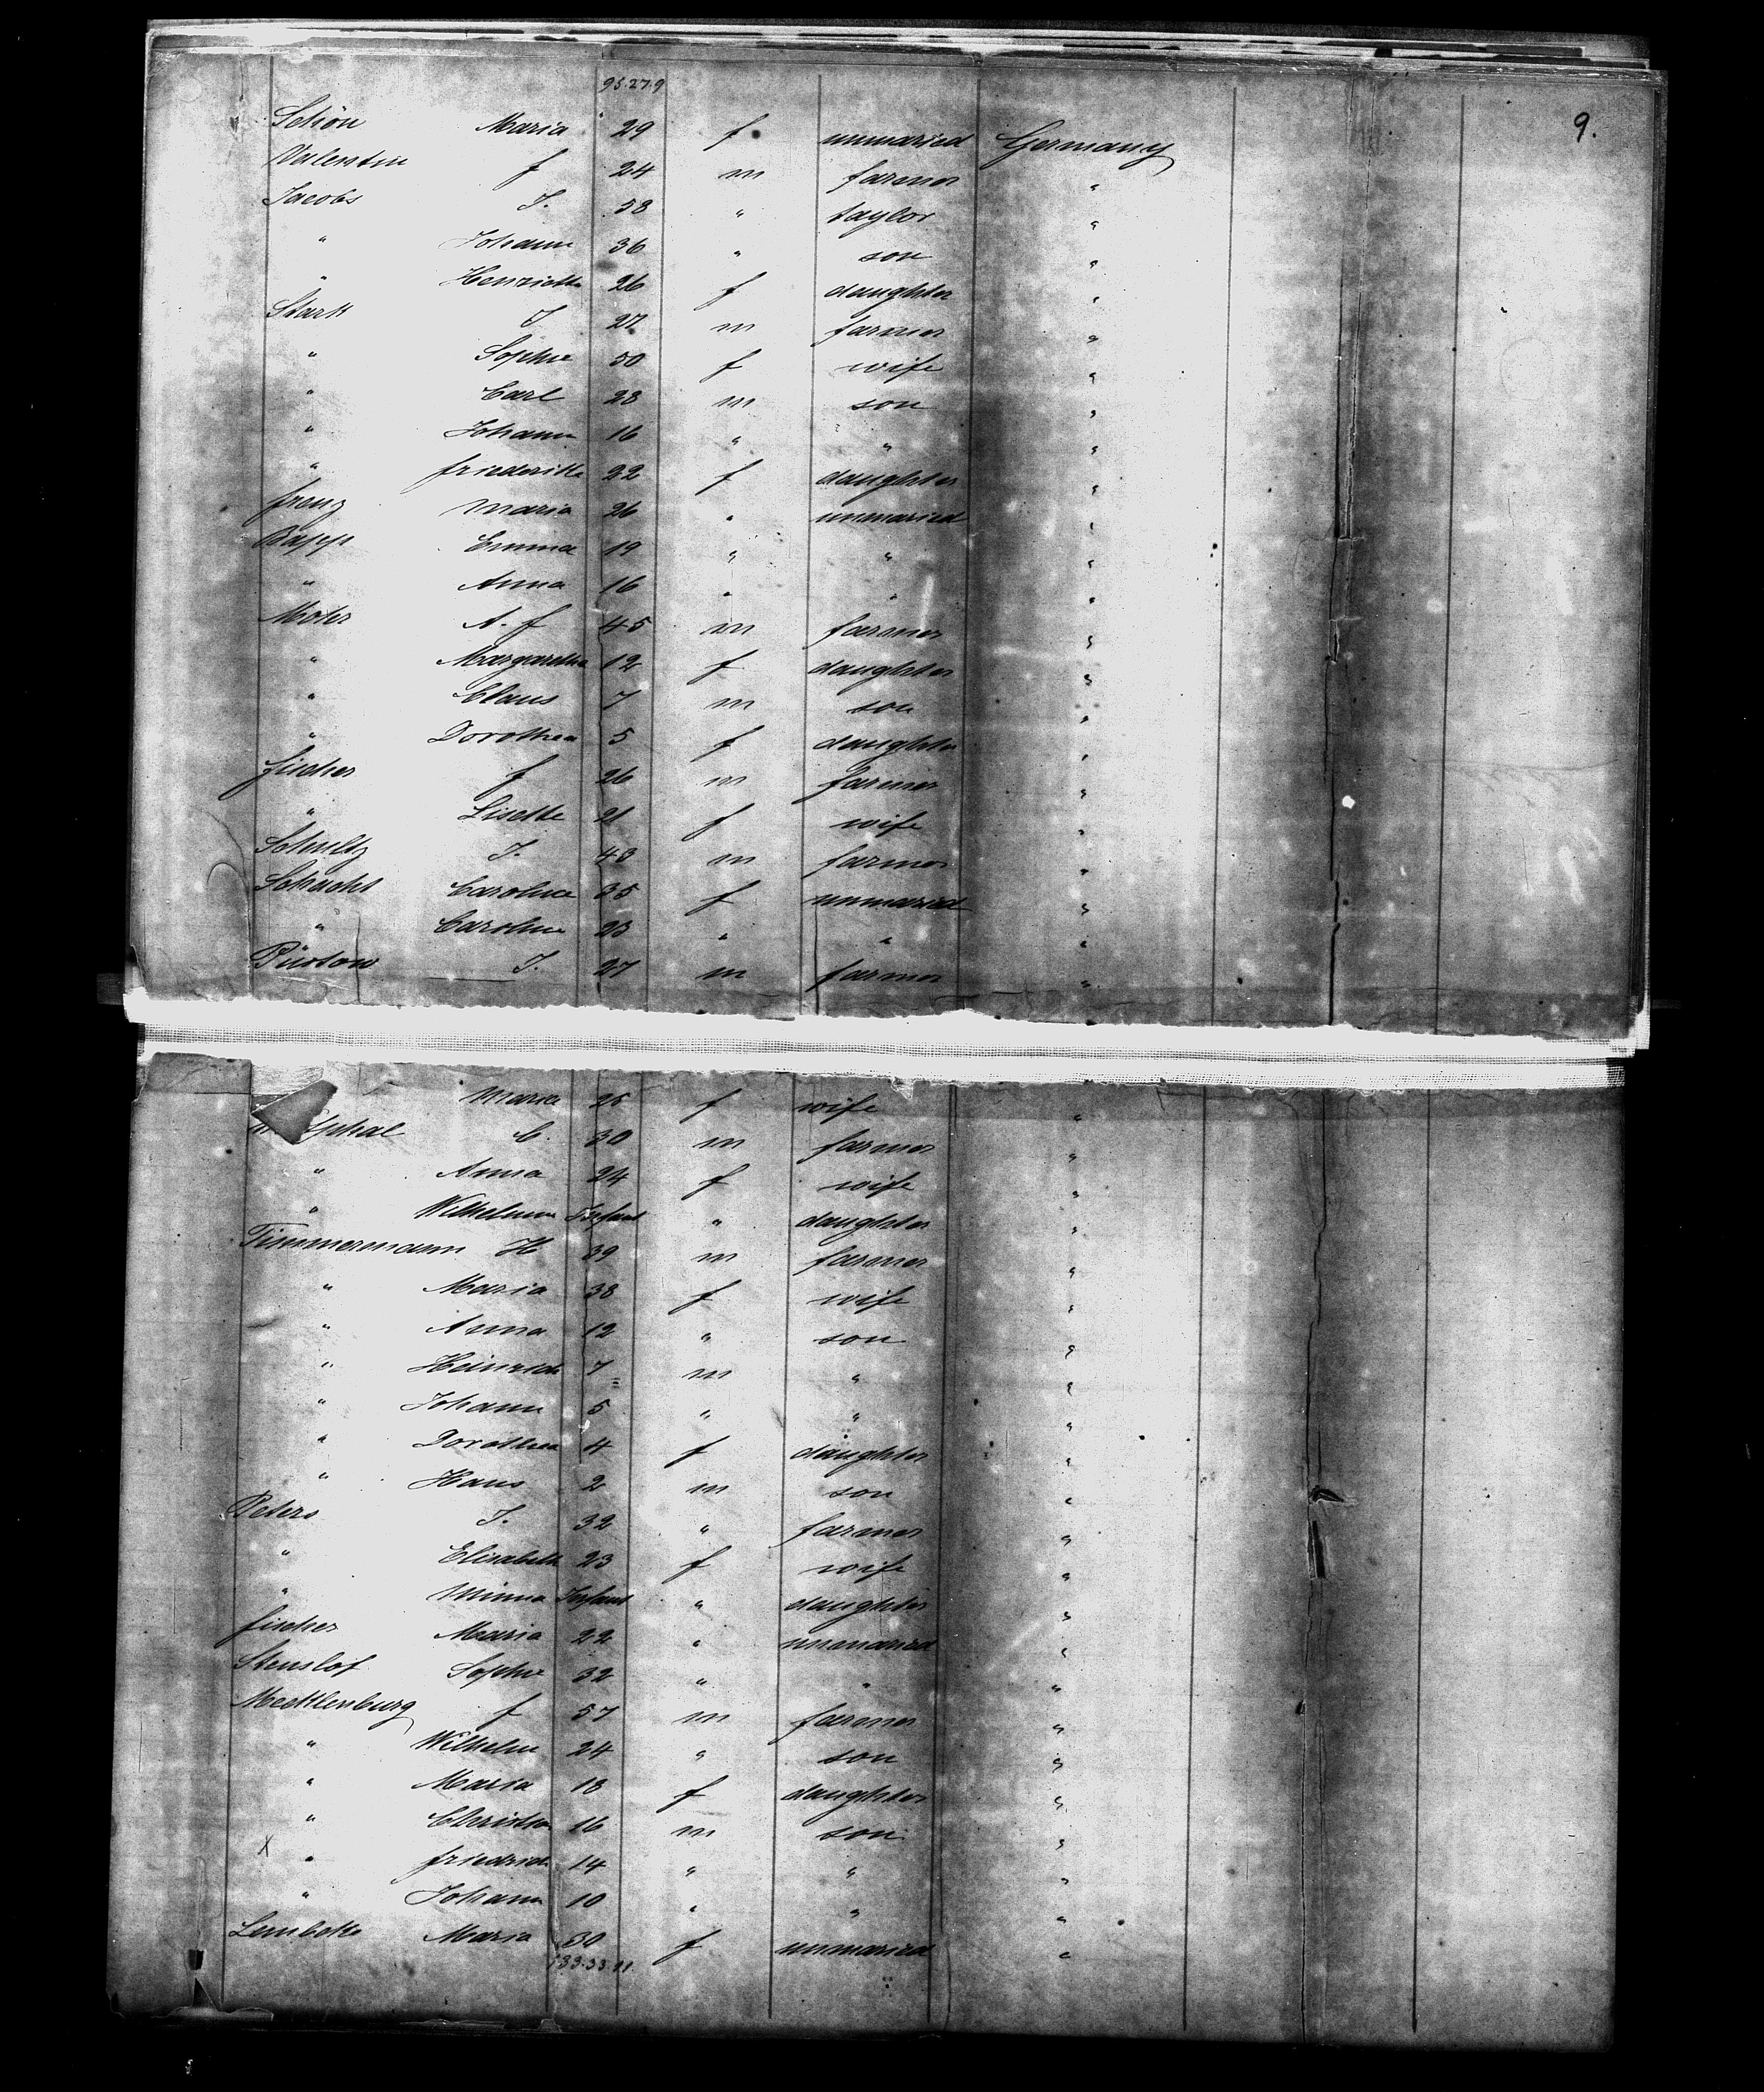 95.27.9
9.
Schön Maria 29 f unmaried Germany
Valentin f 24 m farmer "
Jacobs J. 58 " taylor "
" Johann 36 " son "
" Henriette 26 f daughter "
Stark J 27 m farmer "
" Sophie 50 f wife "
" Carl 28 m son "
" Johann 16 " " "
" friederike 22 f daughter "
frenz Maria 26 " unmaried "
Rapp Emma 19 " " "
" Anna 16 " " "
A. f 45 m farmer "
" Margaretha 12 f daughter "
" Claus 7 m son "
" Dorothea 5 f daughter "
fischer f 26 m farmer "
" Lisette 21 f wife "
Schultz J. 43 m farmer "
Schacht Caroline 35 f unmaried "
" Caroline 23 " " "
Püstow J. 27 m farmer "
Maria 25 f wife "
phal C. 30 m farmer "
" Anna 24 f wife "
" Wilhelmine Infant " daughter "
Timmermann H 39 m farmer "
" Maria 38 f wife "
" Anna 12 " son "
" Heinrich 7 m " "
" Johann 5 " " "
" Dorothea 4 f daughter "
" Hans 2 m son "
Peters J. 32 " farmer "
" Elisabeth 23 f wife "
" Minna Infant " daughter "
fischer Maria 22 " unmaried "
Stenslof Sophie 32 " " "
Mecklenburg f 57 m farmer "
" Wilhelm 24 " son "
" Maria 18 f daughter "
" Christian 16 m son "
X " friedrich 14 " " "
" Johann 10 " " "
Lembcke Maria 30 f unmaried "
133.33.11